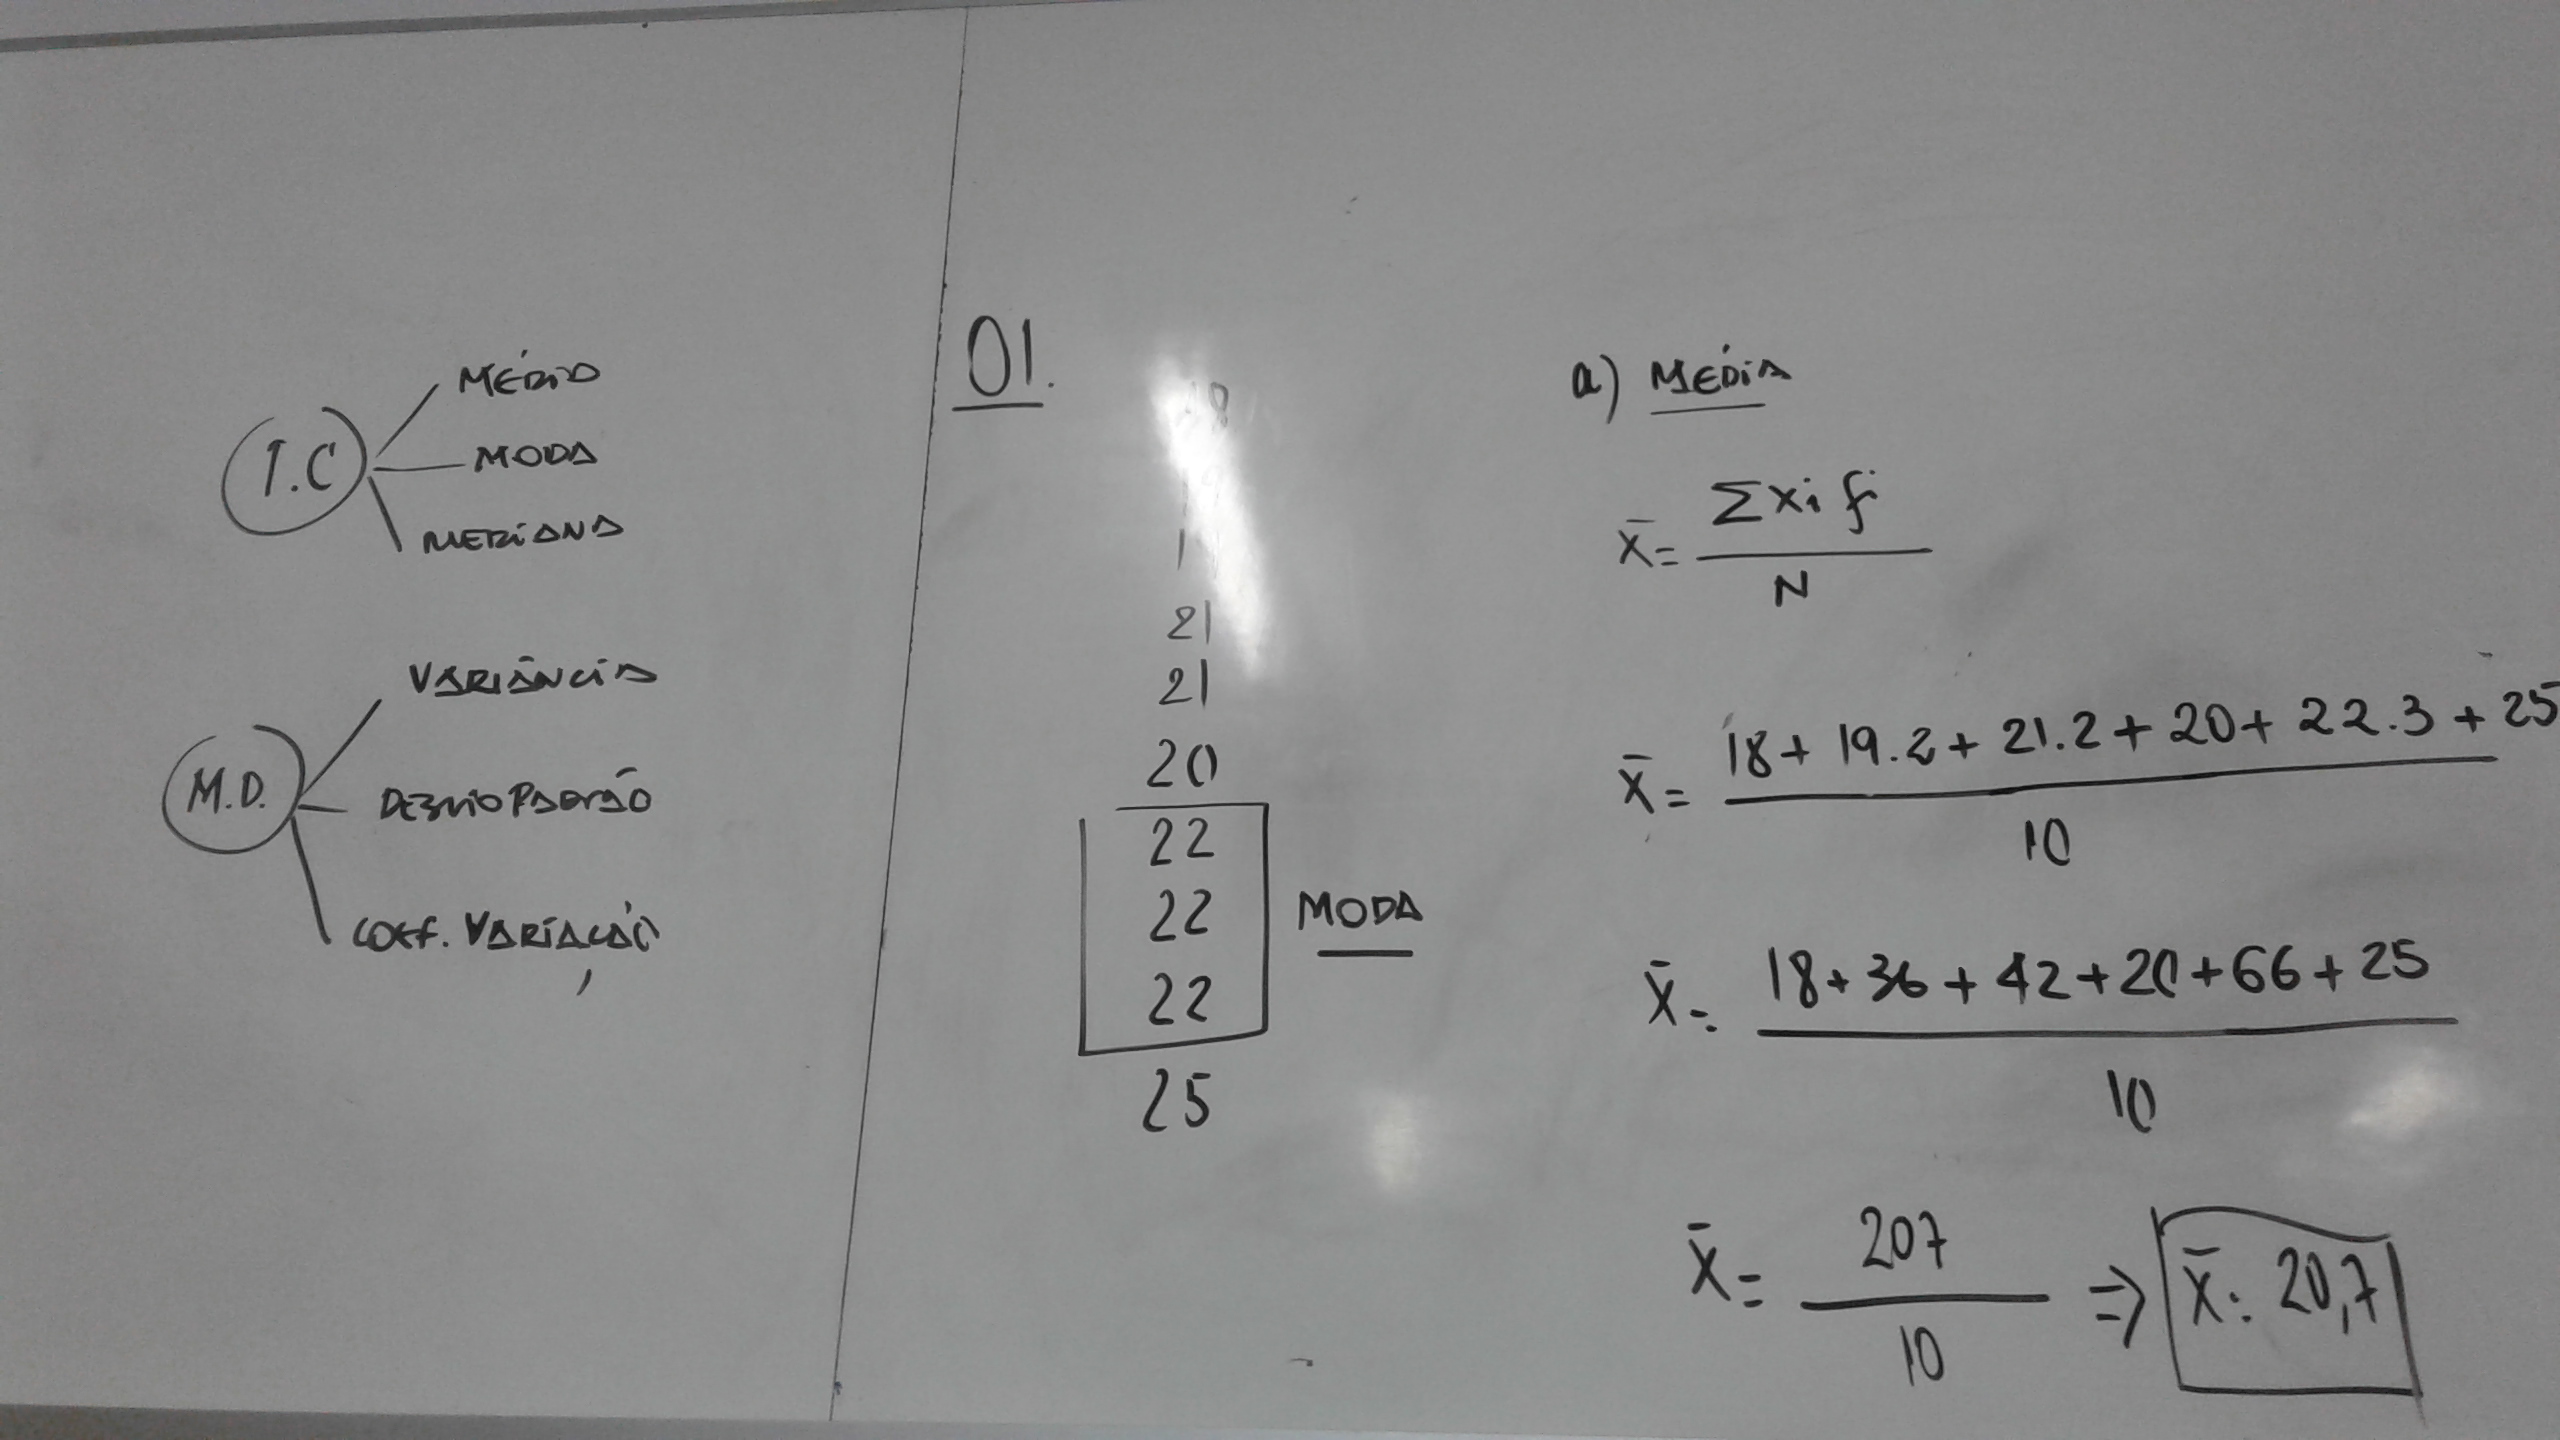 T.C
MÉDIA
MODA
MEDIANA
M.D.
VARIÂNCIA
DESVIO PADRÃO
COEF. VARIAÇÃO
01.
18
19
21
21
20
22
22
22
25
MODA
a) MÉDIA
x̄ = Σxi fi / N
x̄ = 18 + 19.2 + 21.2 + 20 + 22.3 + 25 / 10
x̄ = 18 + 36 + 42 + 20 + 66 + 25 / 10
x̄ = 207 / 10 ⇒ x̄ = 20,7